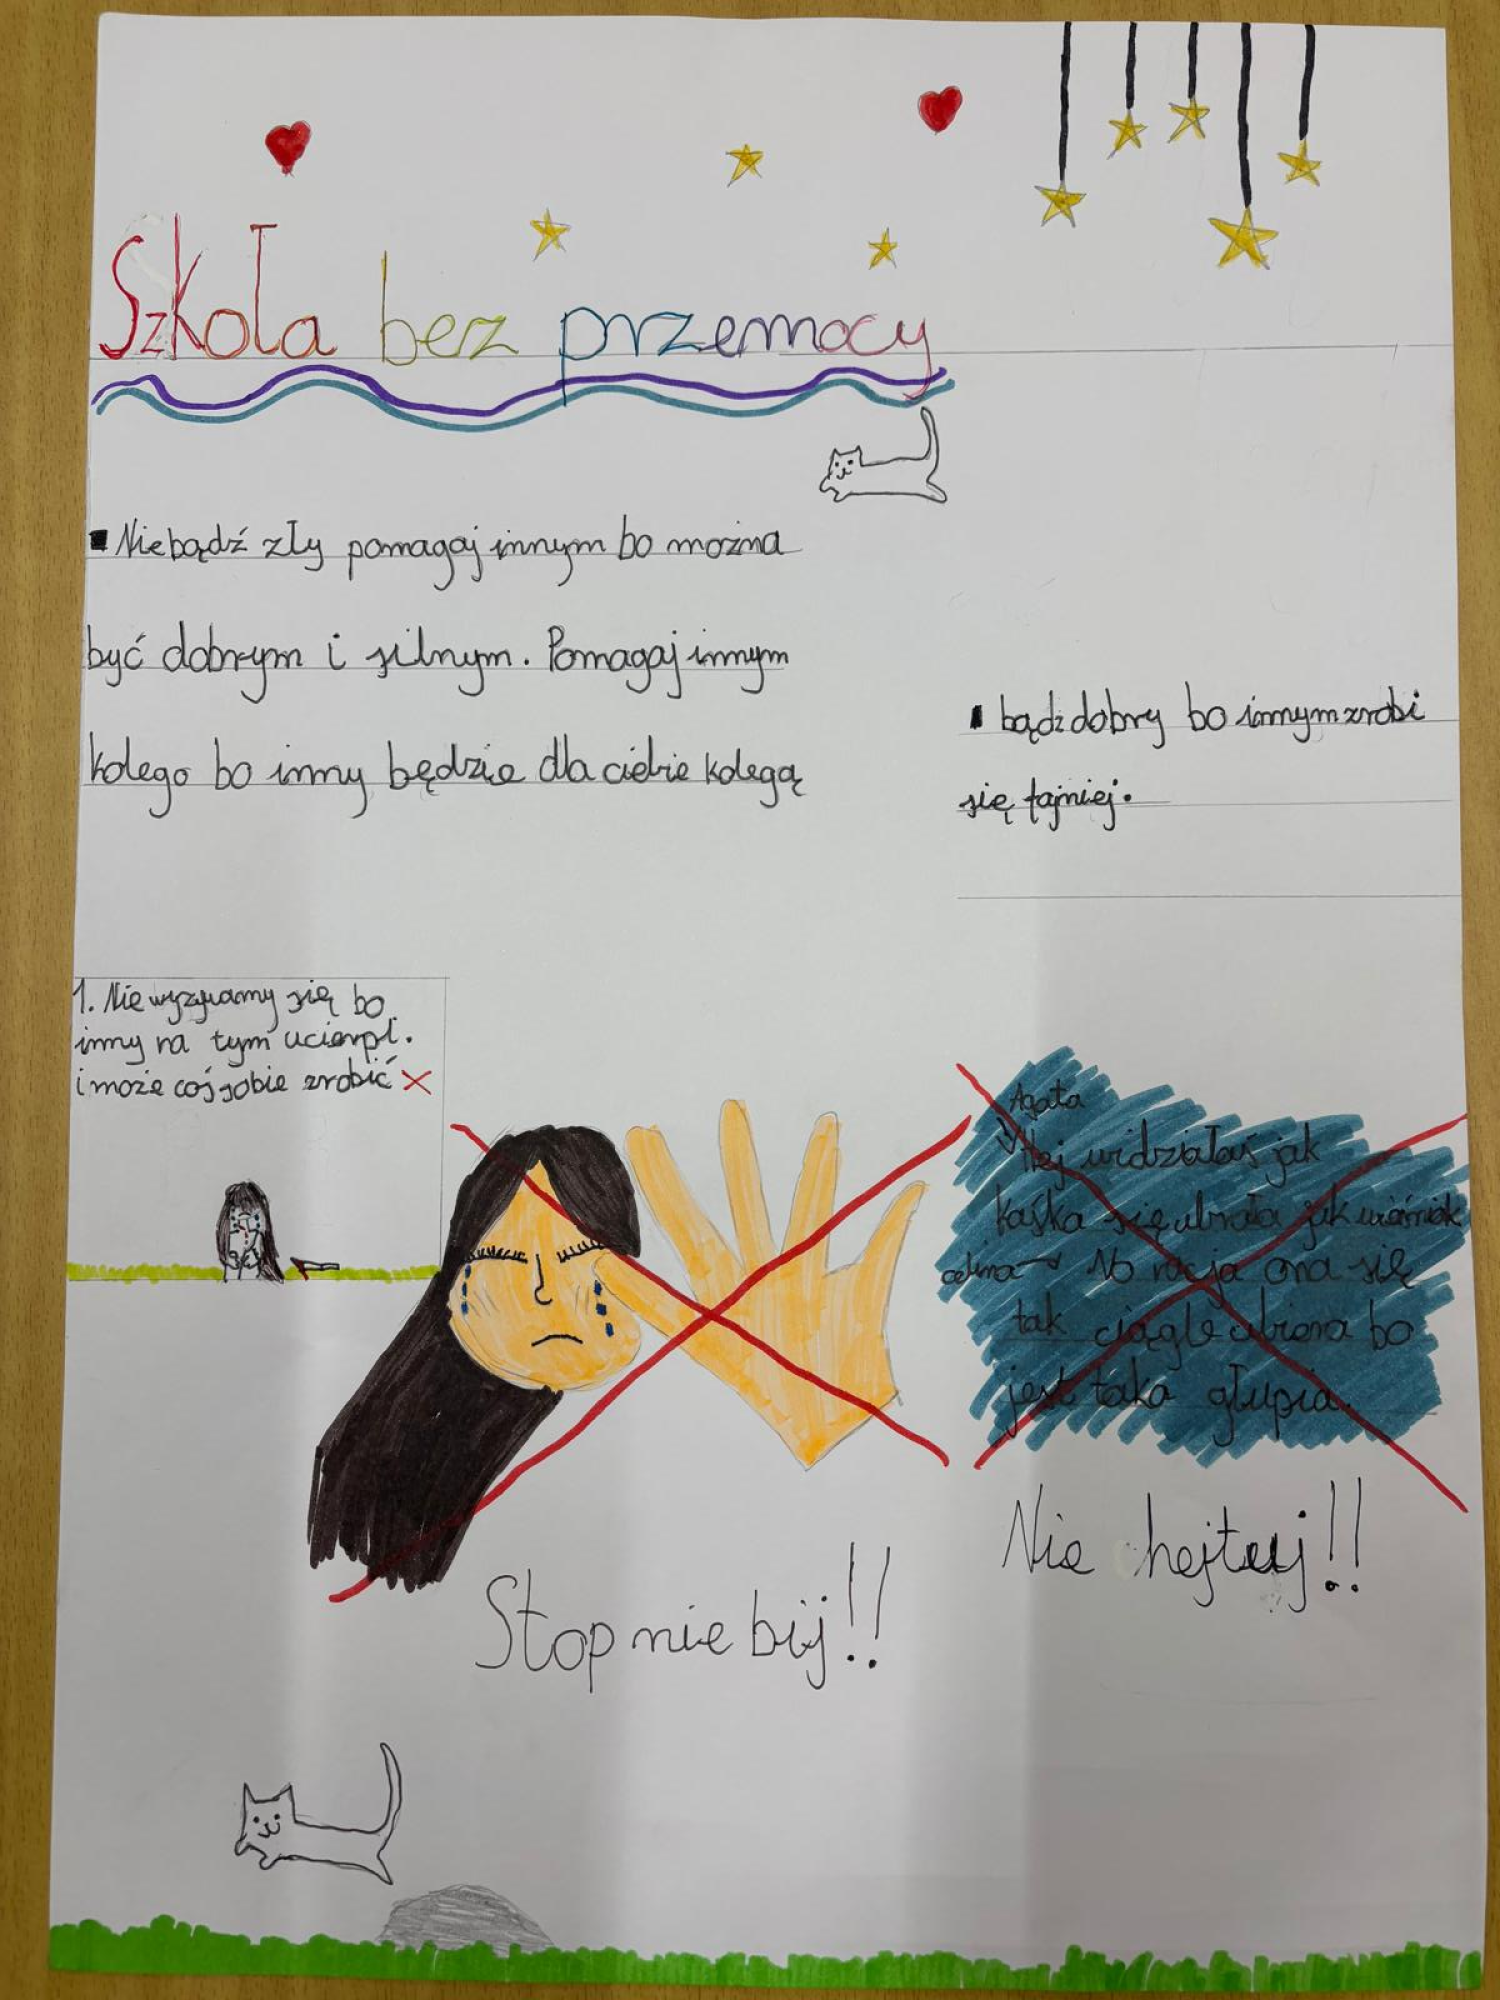 Szkoła bez przemocy
▪ Niebądź zły pomagaj innym bo można
być dobrym i silnym. Pomagaj innym
kolego bo inny będzie dla ciebie kolegą
▪ bądź dobry bo innym zrobi
się fajniej.
1. Nie wyzywamy się bo
inny na tym ucierpi.
i może coś sobie zrobić
Agata
Hej widziałaś jak
Kaśka się ubrała jak wieśniak
celina → No racja ona się
tak ciągle ubiera bo
jest taka głupia.
Nie hejtuj!!
Stop nie bij!!